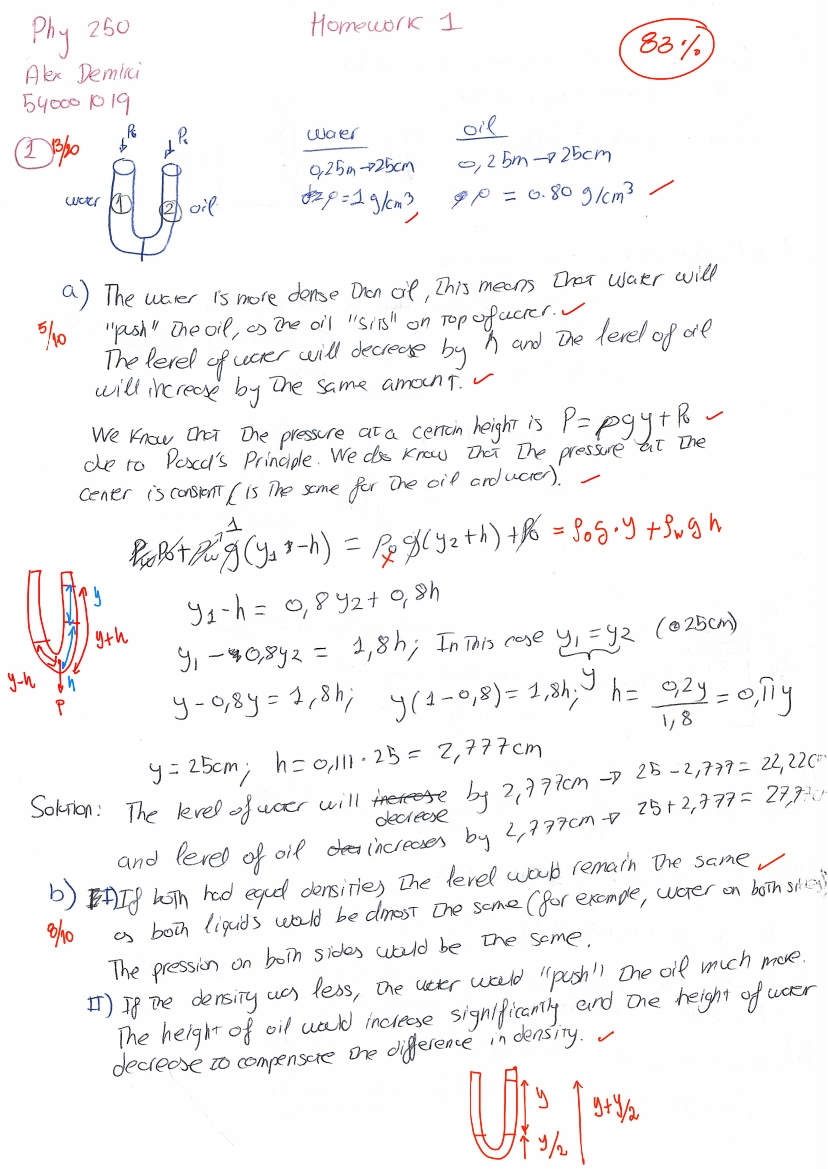 Phy 250
Homework 1
83%
Alex Demirci
54000 1019
1 13/20
P₀ P₀
water 1 2 oil
water
0,25m → 25cm
ρ = 1 g/cm³
oil
0,25m → 25cm
ρ = 0.80 g/cm³
a) The water is more dense than oil, this means that water will
5/10
"push" the oil, as the oil "sits" on top of water.
The level of water will decrease by h and the level of oil
will increase by the same amount.
We know that the pressure at a certain height is P = ρgy + P₀
due to Pascal's Principle. We also know that the pressure at the
center is constant (is the same for the oil and water).
P₀ + ρw g (y₁ - h) = ρo g (y₂ + h) + P₀ = ρo g · y + ρw g h
1
y₁ - h = 0,8y₂ + 0,8h
y
y+h
y-h
h
P
y₁ - 0,8y₂ = 1,8h; In this case y₁ = y₂ (25cm)
y
y - 0,8y = 1,8h; y(1 - 0,8) = 1,8h; h = 0,2y/1,8 = 0,11y
y = 25cm; h = 0,111 · 25 = 2,777cm
Solution: The level of water will increase decrease by 2,777cm → 25 - 2,777 = 22,22c
and level of oil increases by 2,777cm → 25 + 2,777 = 27,7
b) I) If both had equal densities the level would remain the same
8/10
as both liquids would be almost the same (for example, water on both sides)
The pression on both sides would be the same.
II) If the density was less, the water would "push" the oil much more.
The height of oil would increase significantly and the height of water
decrease to compensate the difference in density.
y
y/2
y+y/2